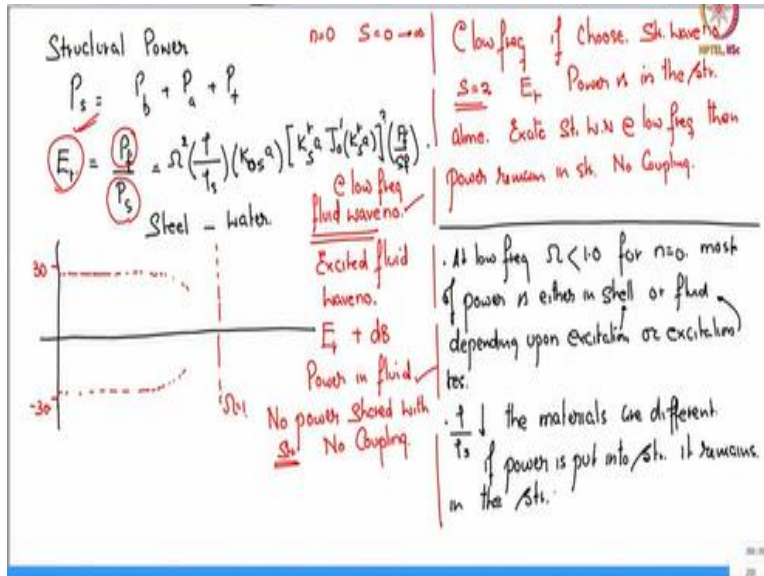 Structural Power
P_s = P_b + P_a + P_t
E_r = P_f / P_s = Ω² (ρ / ρ_s) (K_ns a) [K_s^r a J_0'(K_s^r a)]²
Steel - Water
30
-30
Ω=1
n=0 S=0→∞
@ low freq
fluid waveno.
Excited fluid
waveno.
E_r + dB
Power in fluid
No power shared with
Str No Coupling.
@ low freq if choose. Str. waveno
NPTEL, IISc
S=2 E_r Power is in the str.
alone. Excite Str. W.N @ low freq then
power remain in str. No Coupling.
. At low freq Ω < 1.0 for n=0. most
of power is either in shell or fluid
depending upon excitation or excitation
. ρ/ρ_s ↓ the materials are different
if power is put into str. it remains
in the str.